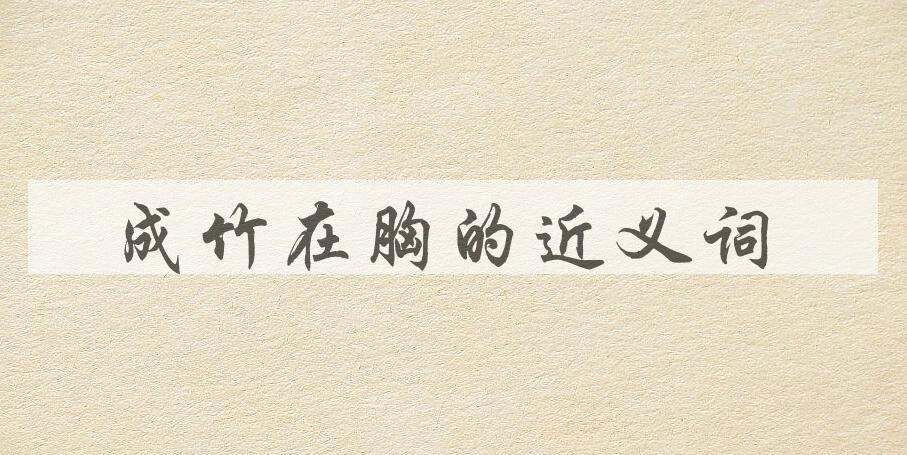 成竹在胸的近义词